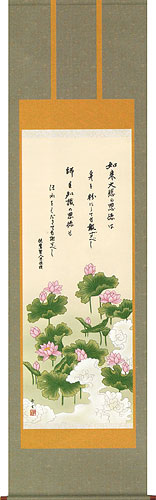 如来大悲の恩徳は
身を粉にしても報ずべし
師主知識の恩徳も
ほねをくだきても謝すべし